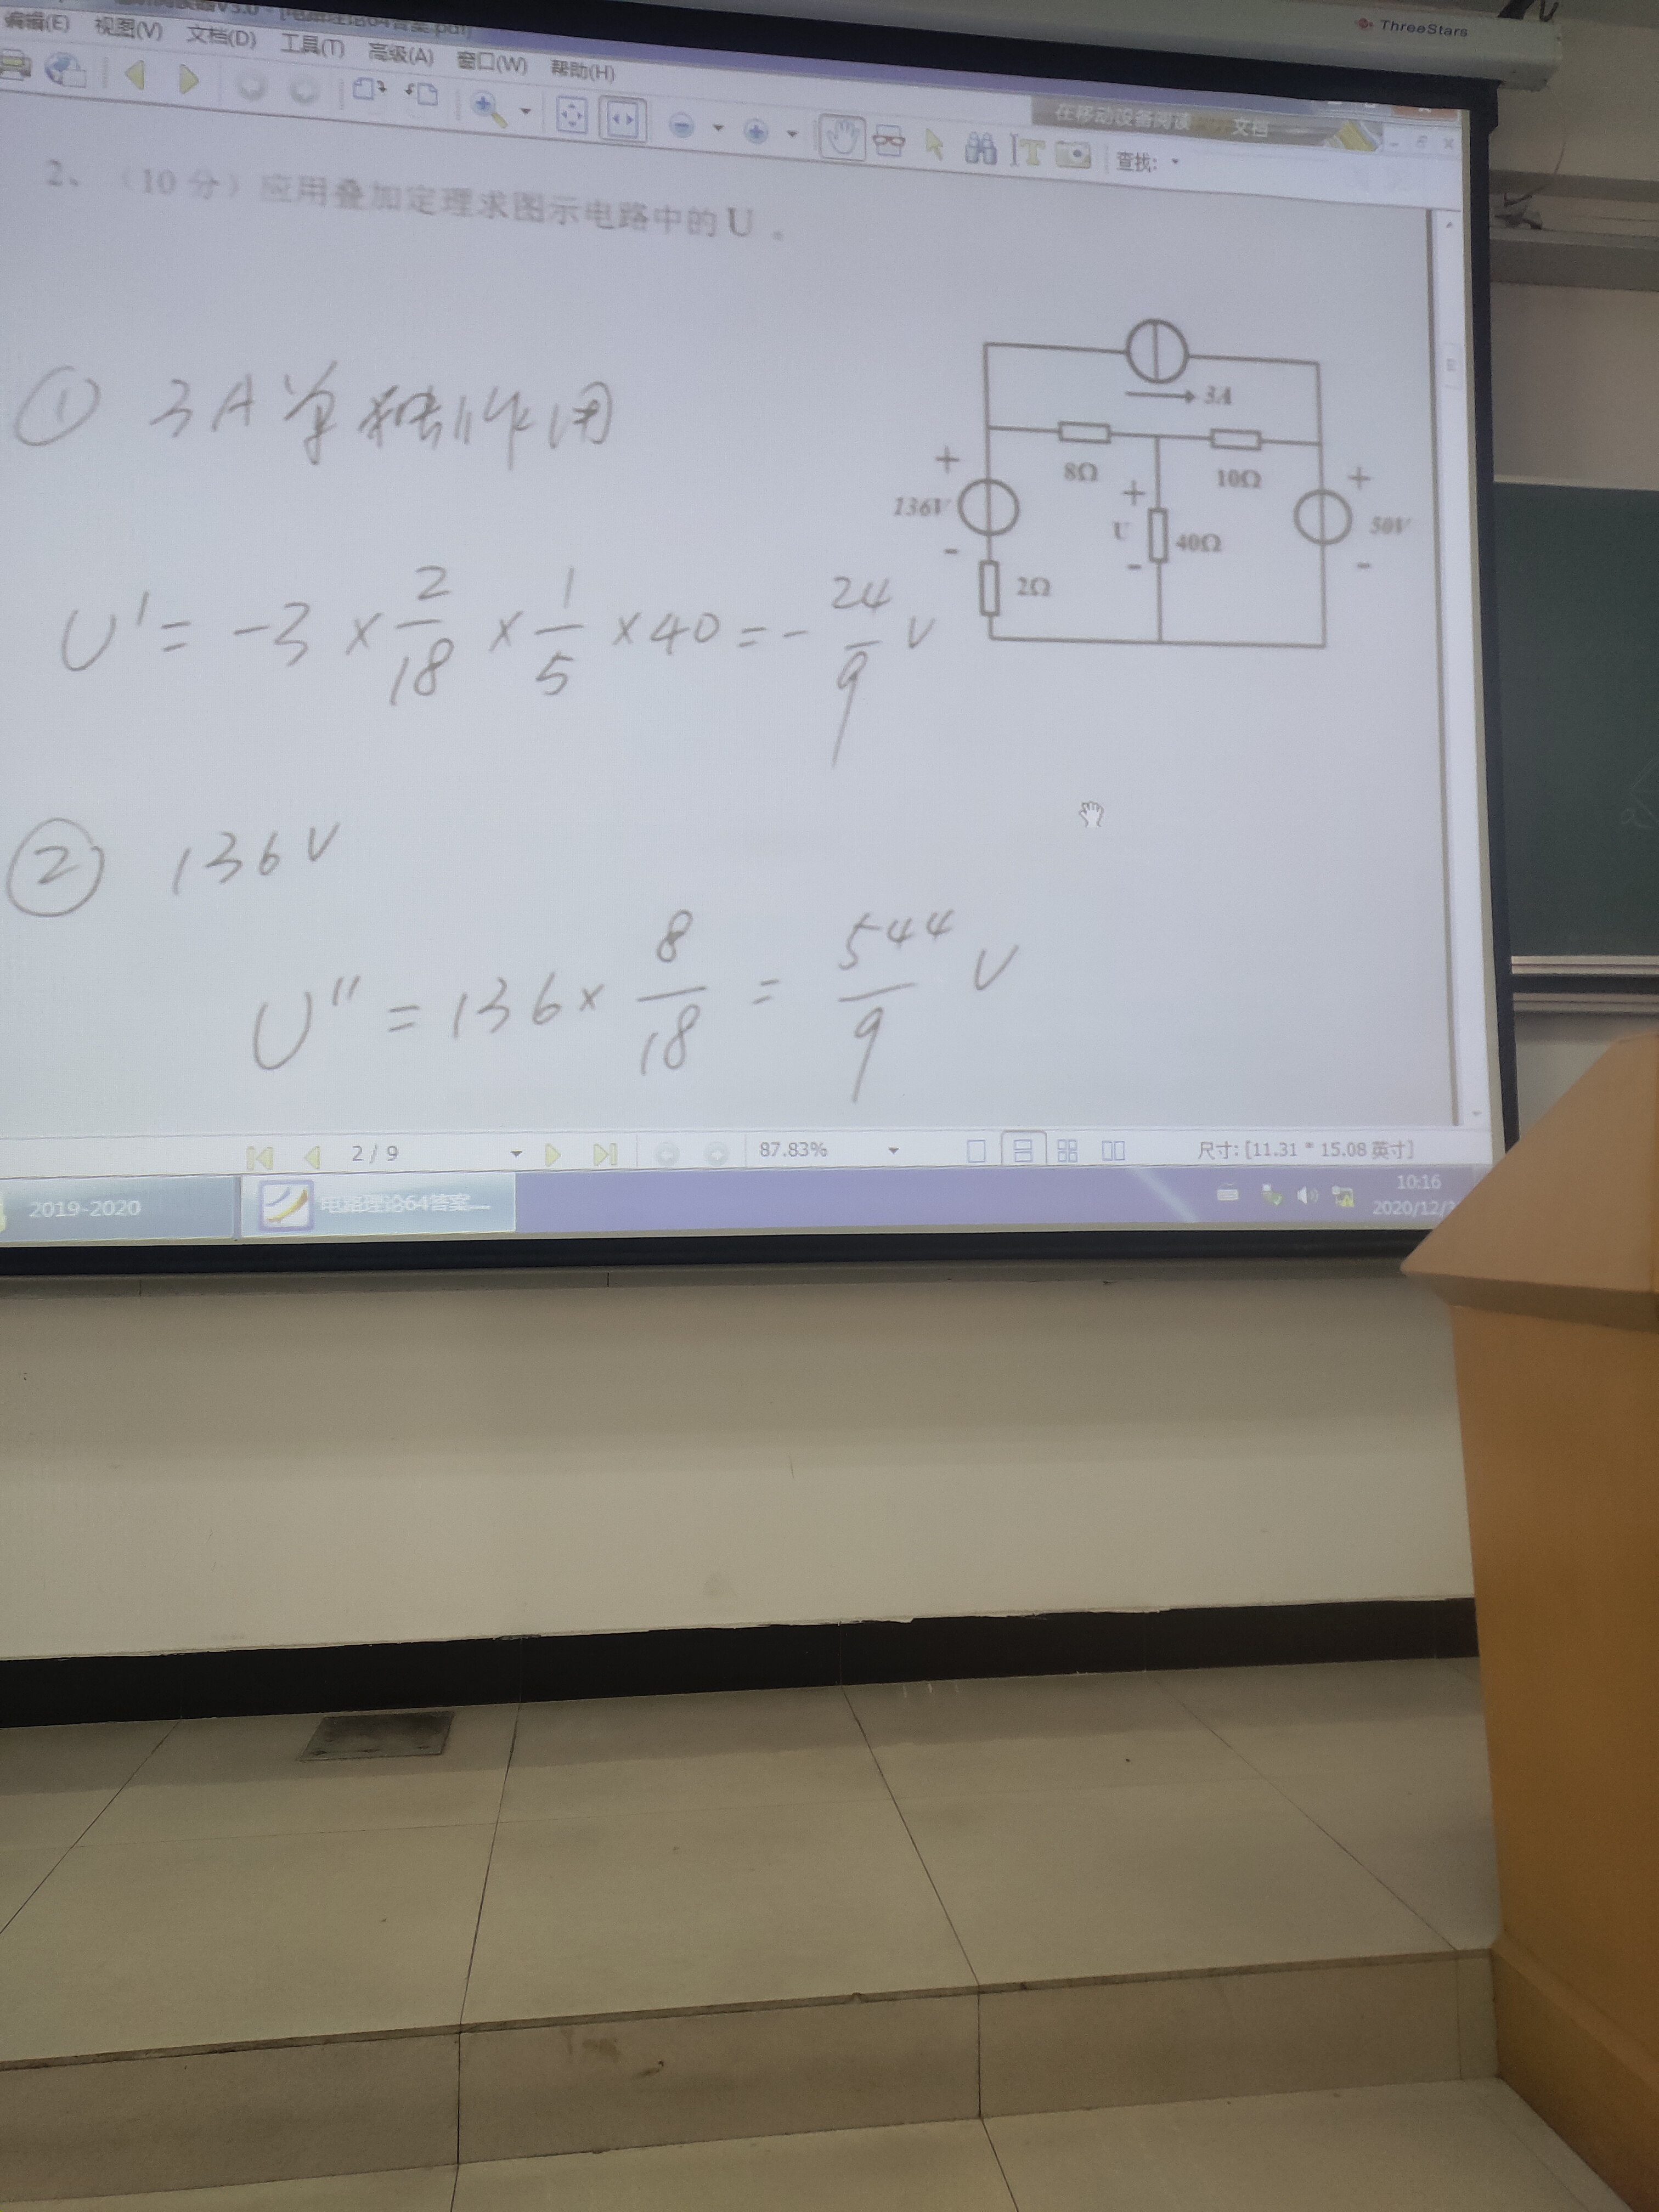 ThreeStars
编辑(E) 视图(V) 文档(D) 工具(T) 高级(A) 窗口(W) 帮助(H)
在移动设备阅读 文档
查找:
2、（10分）应用叠加定理求图示电路中的 U 。
① 3A单独作用
3A
8Ω
10Ω
+
136V
-
+
U
-
40Ω
+
50V
-
2Ω
U' = -3 × 2/18 × 1/5 × 40 = - 24/9 V
② 136V
U'' = 136 × 8/18 = 544/9 V
2 / 9
87.83%
尺寸: [11.31 * 15.08 英寸]
2019-2020
电路理论64答案...
10:16
2020/12/